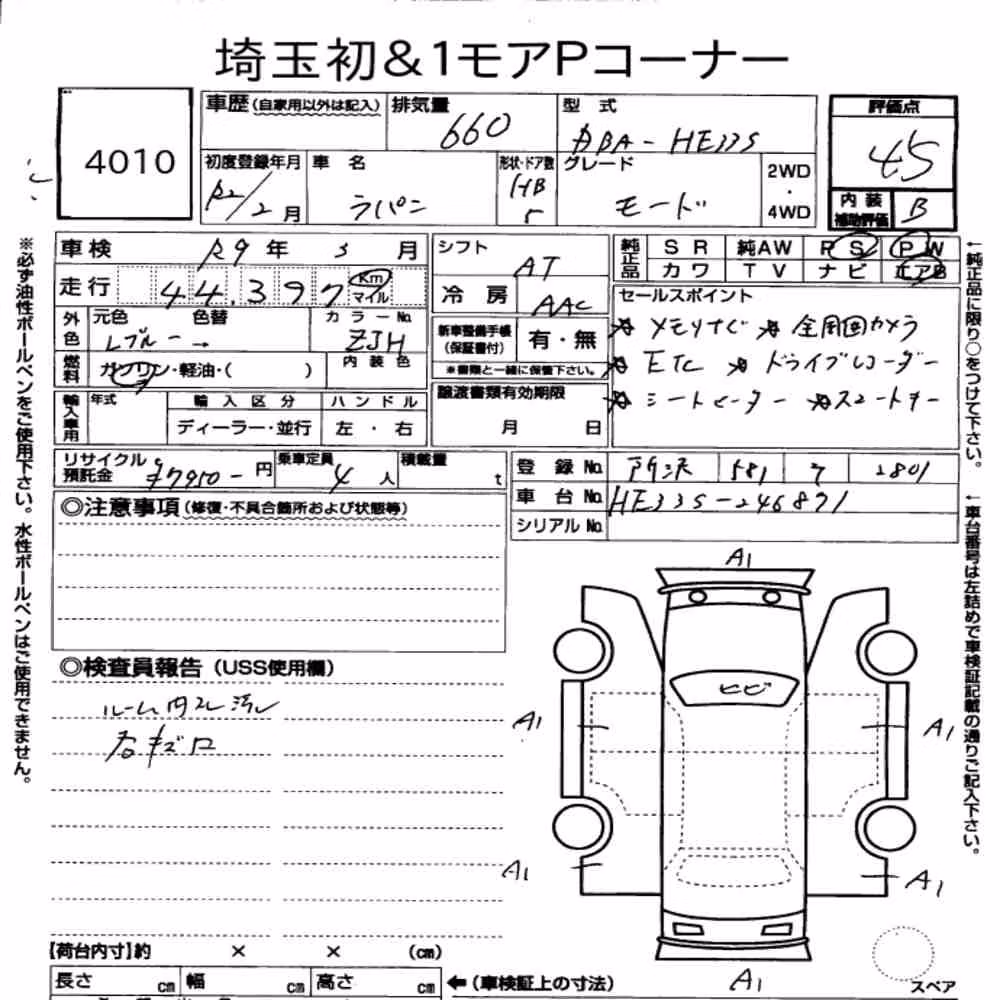 埼玉初&1モアPコーナー
4010
車歴(自家用以外は記入)
排気量 660
型式 DBA-HE33S
評価点 45
内装補助評価 B
初度登録年月 R2/2月
車名 ラパン
形状・ドア数 HB 5
グレード モード
2WD・4WD
車検 R9年3月
走行 44,397 Km マイル
外色 元色 色替 Lブルー →
カラーNo. ZJH
燃料 ガソリン・軽油・( )
内装色
輸入車用 年式 輸入区分 ディーラー・並行 ハンドル 左・右
シフト AT
冷房 AAC
新車整備手帳(保証書付) 有・無
※書類と一緒に保管下さい。
譲渡書類有効期限 月 日
純正品 SR 純AW PS PW
カワ TV ナビ エアB
セールスポイント
☆メモリナビ ☆全周囲カメラ
☆ETC ☆ドライブレコーダー
☆シートヒーター ☆スマートキー
リサイクル預託金 ¥7950-円
乗車定員 4人
積載量 t
登録No. 所沢 581 2801
車台No. HE33S-246871
シリアルNo.
◎注意事項(修復・不具合箇所および状態等)
◎検査員報告(USS使用欄)
ルーム内スレ汚レ
右キズロ
A1
ヒビ
A1
A1
A1
A1
A1
スペア
【荷台内寸】約 × × (cm)
長さ cm 幅 cm 高さ cm ←(車検証上の寸法)
※必ず油性ボールペンをご使用下さい。水性ボールペンはご使用できません。
←純正品に限り○をつけて下さい。
←車台番号は左詰めで車検証記載の通りご記入下さい。